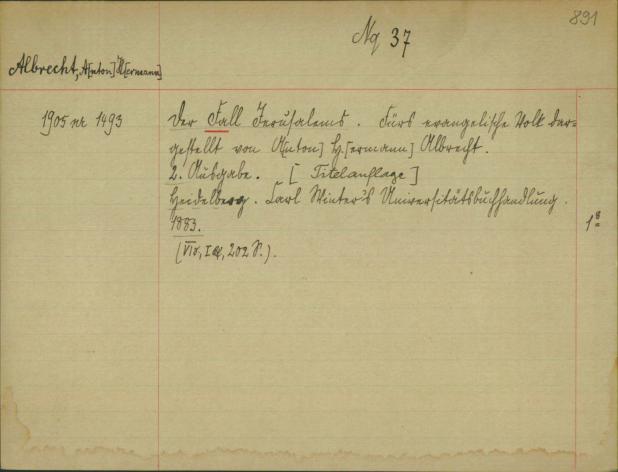 891
Nq 37
Albrecht, A[nton] H[ermann]
1905 nr 1493
Der Fall Jerusalems. Fürs evangelische Volk dar=
gestellt von A[nton] H.[ermann] Albrecht.
2. Ausgabe. [Titelauflage]
Heidelberg. Carl Winter's Universitätsbuchhandlung.
1883.
1 8º
202 S.).